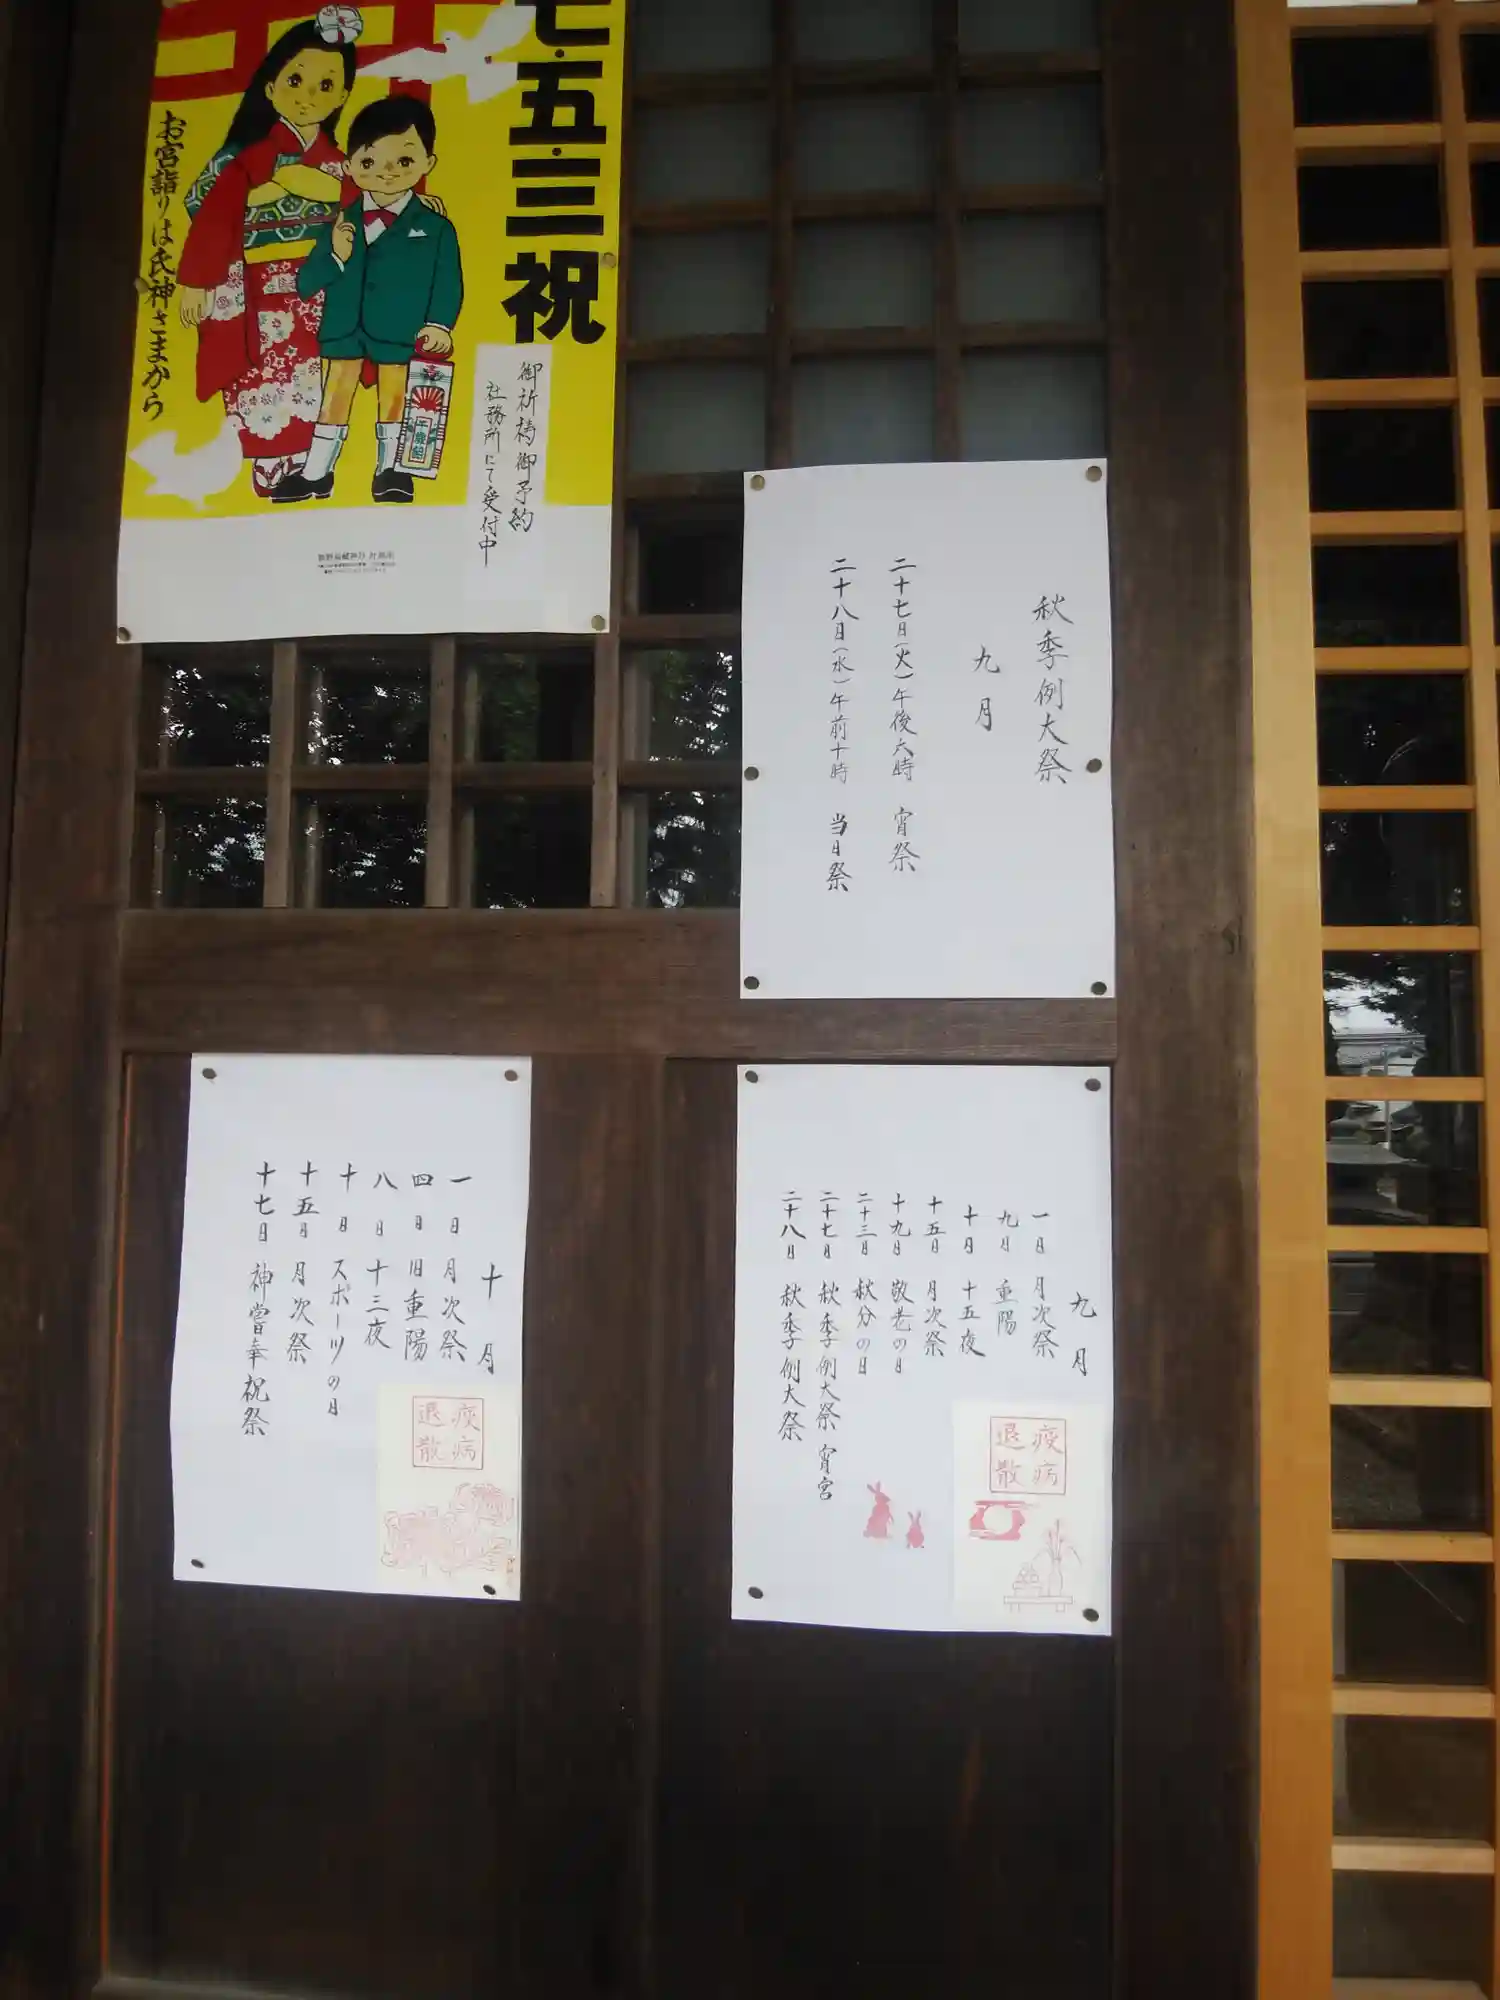 七・五・三 祝
お宮詣りは氏神さまから
御祈祷御予約
社務所にて受付中
千歳飴
秋季例大祭
九月
二十七日(火)午後六時 宵祭
二十八日(水)午前十時 当日祭
九月
一日 月次祭
九日 重陽
十日 十五夜
十五日 月次祭
十九日 敬老の日
二十三日 秋分の日
二十七日 秋季例大祭 宵宮
二十八日 秋季例大祭
疫病
退散
十月
一日 月次祭
四日 旧重陽
八日 十三夜
十日 スポーツの日
十五日 月次祭
十七日 神嘗奉祝祭
疫病
退散